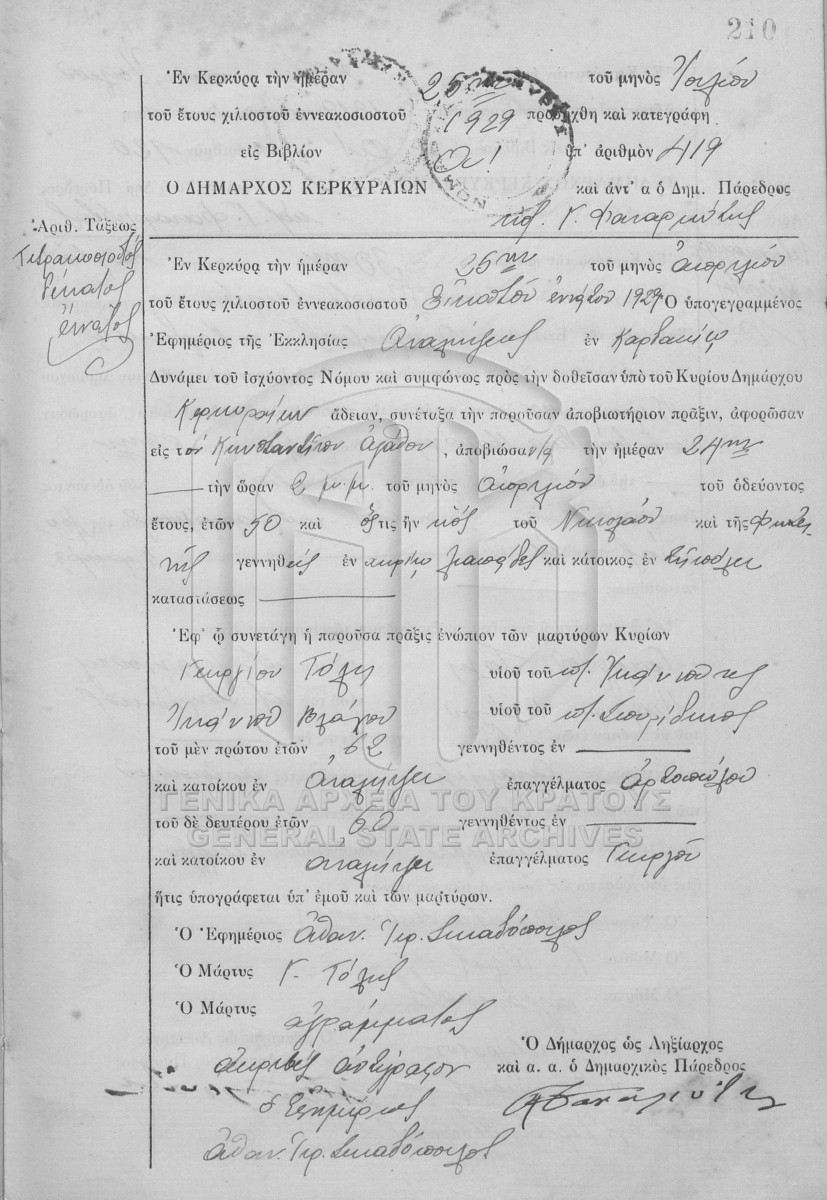 210
Ἐν Κερκύρᾳ τὴν ἡμέραν 25ην τοῦ μηνὸς Ἰουλίου
τοῦ ἔτους χιλιοστοῦ ἐννεακοσιοστοῦ 1929 προσήχθη καὶ κατεγράφη
εἰς Βιβλίον Α! ὑπ' ἀριθμὸν 419
Ο ΔΗΜΑΡΧΟΣ ΚΕΡΚΥΡΑΙΩΝ καὶ ἀντ' α ὁ Δημ. Πάρεδρος
Ἀριθ. Τάξεως
Τετρακοσιοστός
δέκατος
ἔννατος
Ἐν Κερκύρᾳ τὴν ἡμέραν 25ην τοῦ μηνὸς Ἀπριλίου
τοῦ ἔτους χιλιοστοῦ ἐννεακοσιοστοῦ Εἰκοστοῦ ἐννάτου 1929 Ὁ ὑπογεγραμμένος
Ἐφημέριος τῆς Ἐκκλησίας Ἀναλήψεως ἐν
Δυνάμει τοῦ ἰσχύοντος Νόμου καὶ συμφώνως πρὸς τὴν δοθεῖσαν ὑπὸ τοῦ Κυρίου Δημάρχου
Κερκυραίων ἄδειαν, συνέταξα τὴν παροῦσαν ἀποβιωτήριον πρᾶξιν, ἀφορῶσαν
εἰς τὸν Κωνσταντῖνον Ἀγάθον, ἀποβιώσαντα τὴν ἡμέραν 24ην
τὴν ὥραν 2 μ.μ. τοῦ μηνὸς Ἀπριλίου τοῦ ὁδεύοντος
ἔτους, ἐτῶν 50 καὶ ὅστις ἦν υἱὸς τοῦ Νικολάου καὶ τῆς
γεννηθεὶς ἐν χωρίῳ Λιαπάδες καὶ κάτοικος ἐν
καταστάσεως
Ἐφ' ᾧ συνετάγη ἡ παροῦσα πρᾶξις ἐνώπιον τῶν μαρτύρων Κυρίων
Γεωργίου Τόλη υἱοῦ τοῦ
Ἰωάννου Βλάχου υἱοῦ τοῦ ποτ. Σπυρίδωνος
τοῦ μὲν πρώτου ἐτῶν 62 γεννηθέντος ἐν
καὶ κατοίκου ἐν Ἀναλήψει ἐπαγγέλματος Ἀρτοποιοῦ
ΓΕΝΙΚΑ ΑΡΧΕΙΑ ΤΟΥ ΚΡΑΤΟΥΣ
τοῦ δὲ δευτέρου ἐτῶν 60 γεννηθέντος ἐν
GENERAL STATE ARCHIVES
καὶ κατοίκου ἐν Ἀναλήψει ἐπαγγέλματος Γεωργοῦ
ἥτις ὑπογράφεται ὑπ' ἐμοῦ καὶ τῶν μαρτύρων.
Ὁ Ἐφημέριος Ἀθαν. Ἱερ.
Ὁ Μάρτυς Γ. Τόλης
Ὁ Μάρτυς ἀγράμματος
Ὁ Δήμαρχος ὡς Ληξίαρχος
ἀκριβὲς ἀντίγραφον καὶ α. α. ὁ Δημαρχικὸς Πάρεδρος
ὁ Ἐφημέριος
Ἀθαν. Ἱερ.